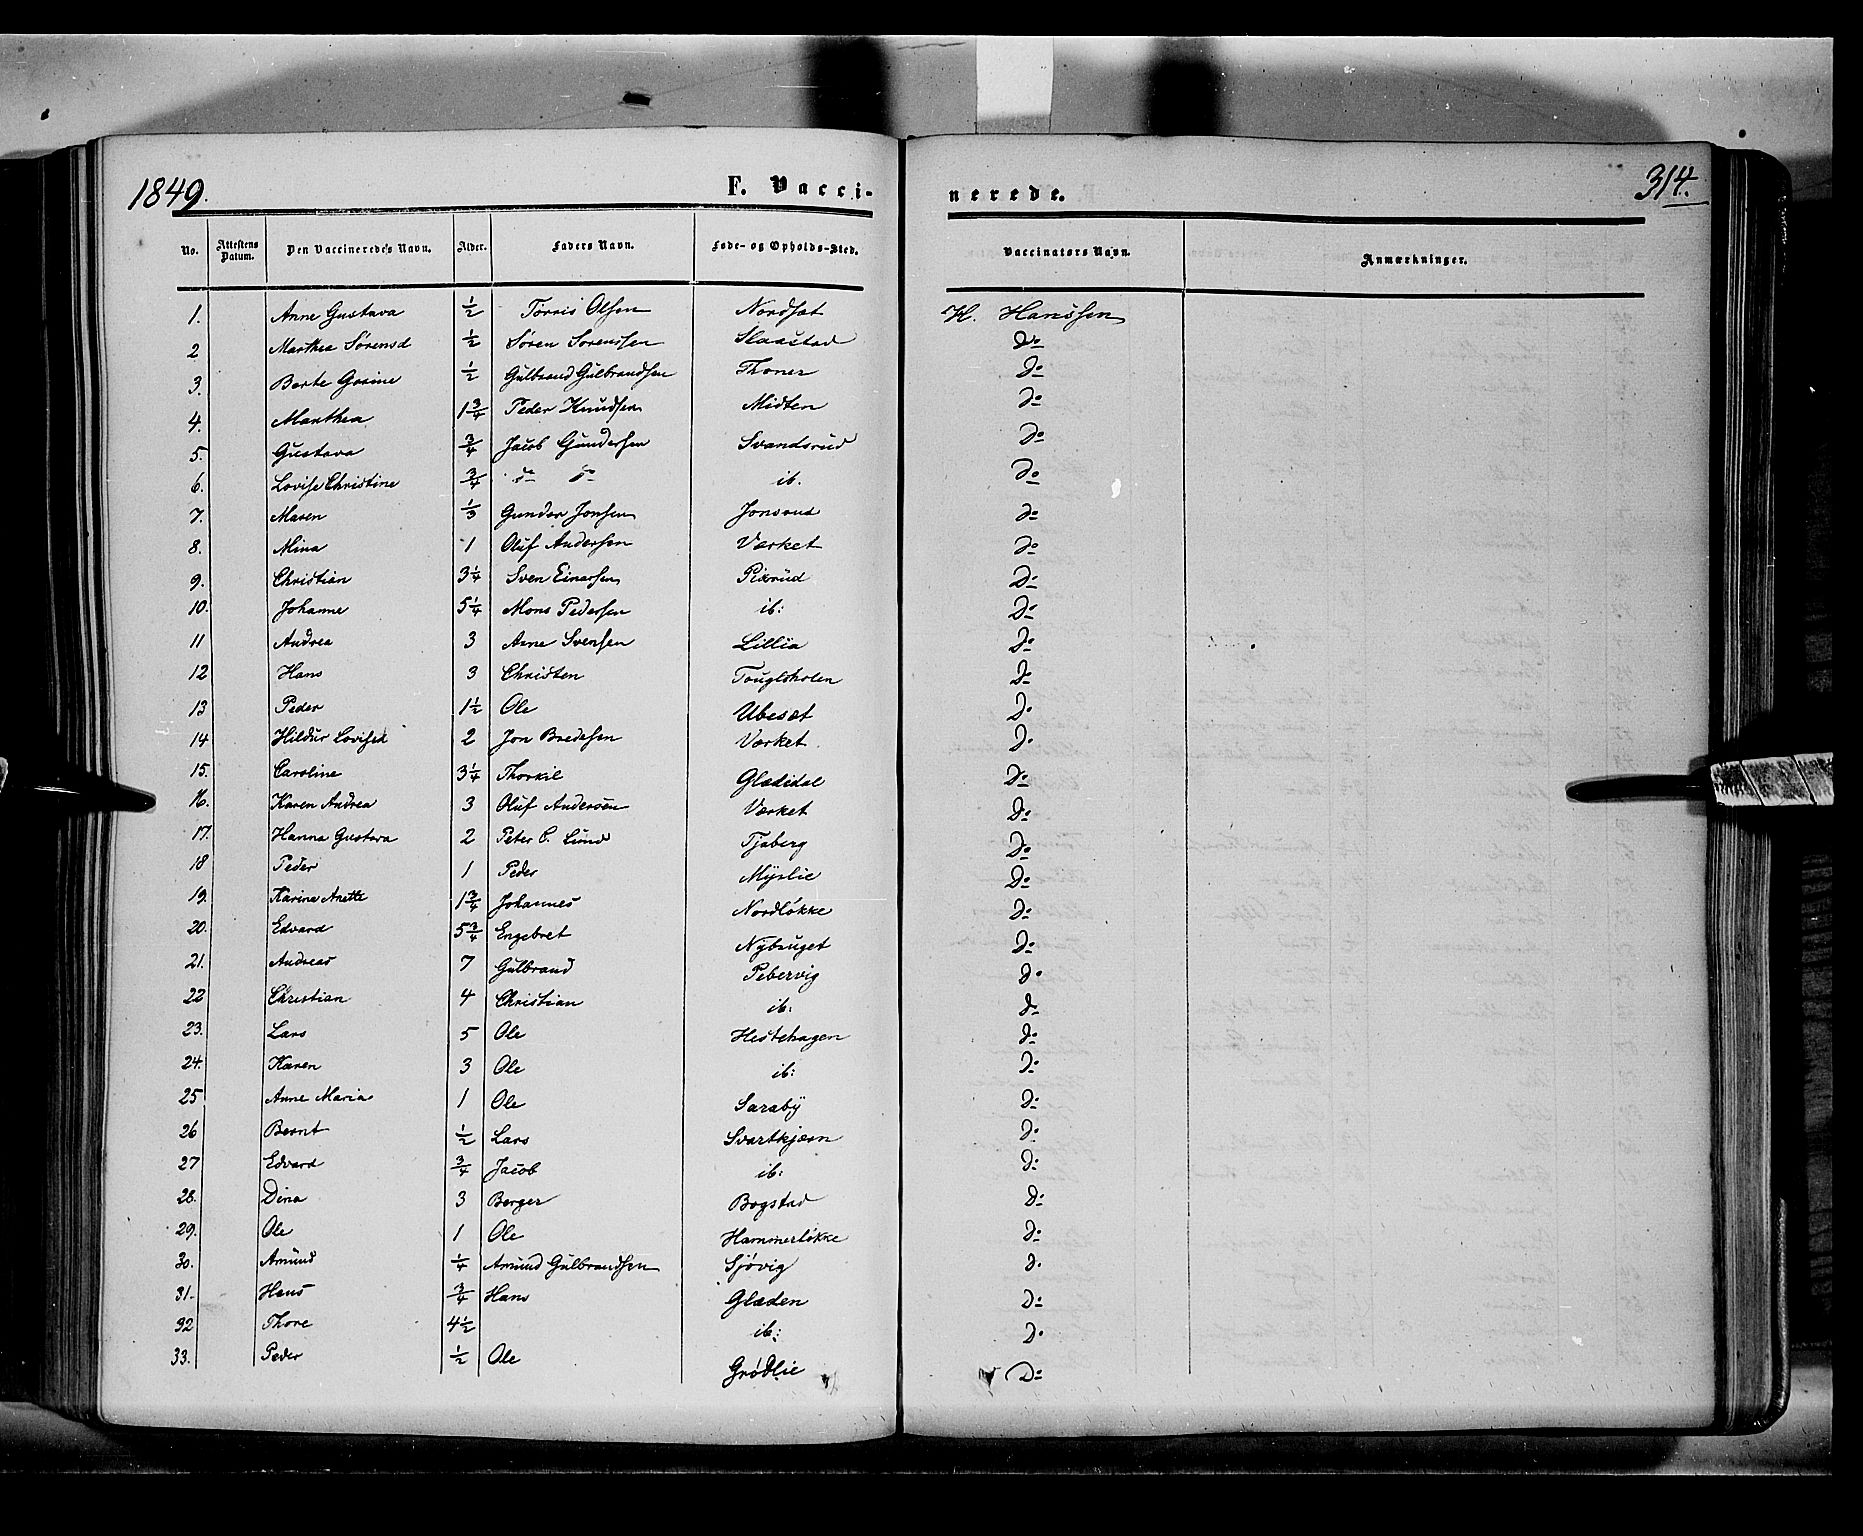 1849. F. Vaccinerede. 314.
No. Attestens Datum. Den Vaccineredes Navn. Alder. Faders Navn. Føde- og Opholds-Sted. Vaccinatørs Navn. Anmærkninger.
1. Anne Gustava ½ Torris Olsen Nordsæt H. Hanssen
2 Marthea Sørensd ½ Søren Sørenssen Slaastad Do
3. Berte Gorine ½ Gulbrand Gulbrandsen Thoner Do
4. Manthea 1¾ Peder Knudsen Midten Do
5. Gustava ¾ Jacob Gundersen Svandsrud Do
6. Lovise Christine ¾ do do ib. Do
7. Maren ⅓ Gunder Jonsen Jonsrud Do
8. Mina 1 Oluf Andersen Værket Do
9. Christian 3¼ Sven Einarsen Pixrud Do
10. Johanne 5¼ Mons Pedersen ib: Do
11 Andrea 3 Arne Svensen Lillia Do
12 Hans 3 Christen Do
13 Peder 1½ Ole Ubesæt Do
14 Hildur Lovise 2 Jon Bredesen Værket Do
15. Caroline 3¼ Thorkil Glædidal Do
16. Karen Andrea 3 Oluf Andersen Værket Do
17. Hanna Gustava 2 Peter C. Lund Tjaberg Do
18 Peder 1 Peder Myslie Do
19. Karine Anette 1¾ Johannes Nordløkke Do
20. Edvard 5¾ Engebret Nybruget Do
21. Andreas 7 Gulbrand Pebervig Do
22 Christian 4 Christian ib: Do
23. Lars 5 Ole Hestehagen Do
24. Karen 3 Ole ib: Do
25 Anne Maria 1 Ole Saraby Do
26 Bernt ½ Lars Svartkjærn Do
27 Edvard ¾ Jacob ib: Do
28. Dina 3 Berger Bogstad Do
29. Ole 1 Ole Hammerløkke Do
30. Amund ¼ Amund Gulbrandsen Sjøvig Do
31. Hans ¾ Hans Glæden Do
32 Thore 4½ ib: Do
33. Peder ½ Ole Grødlie Do